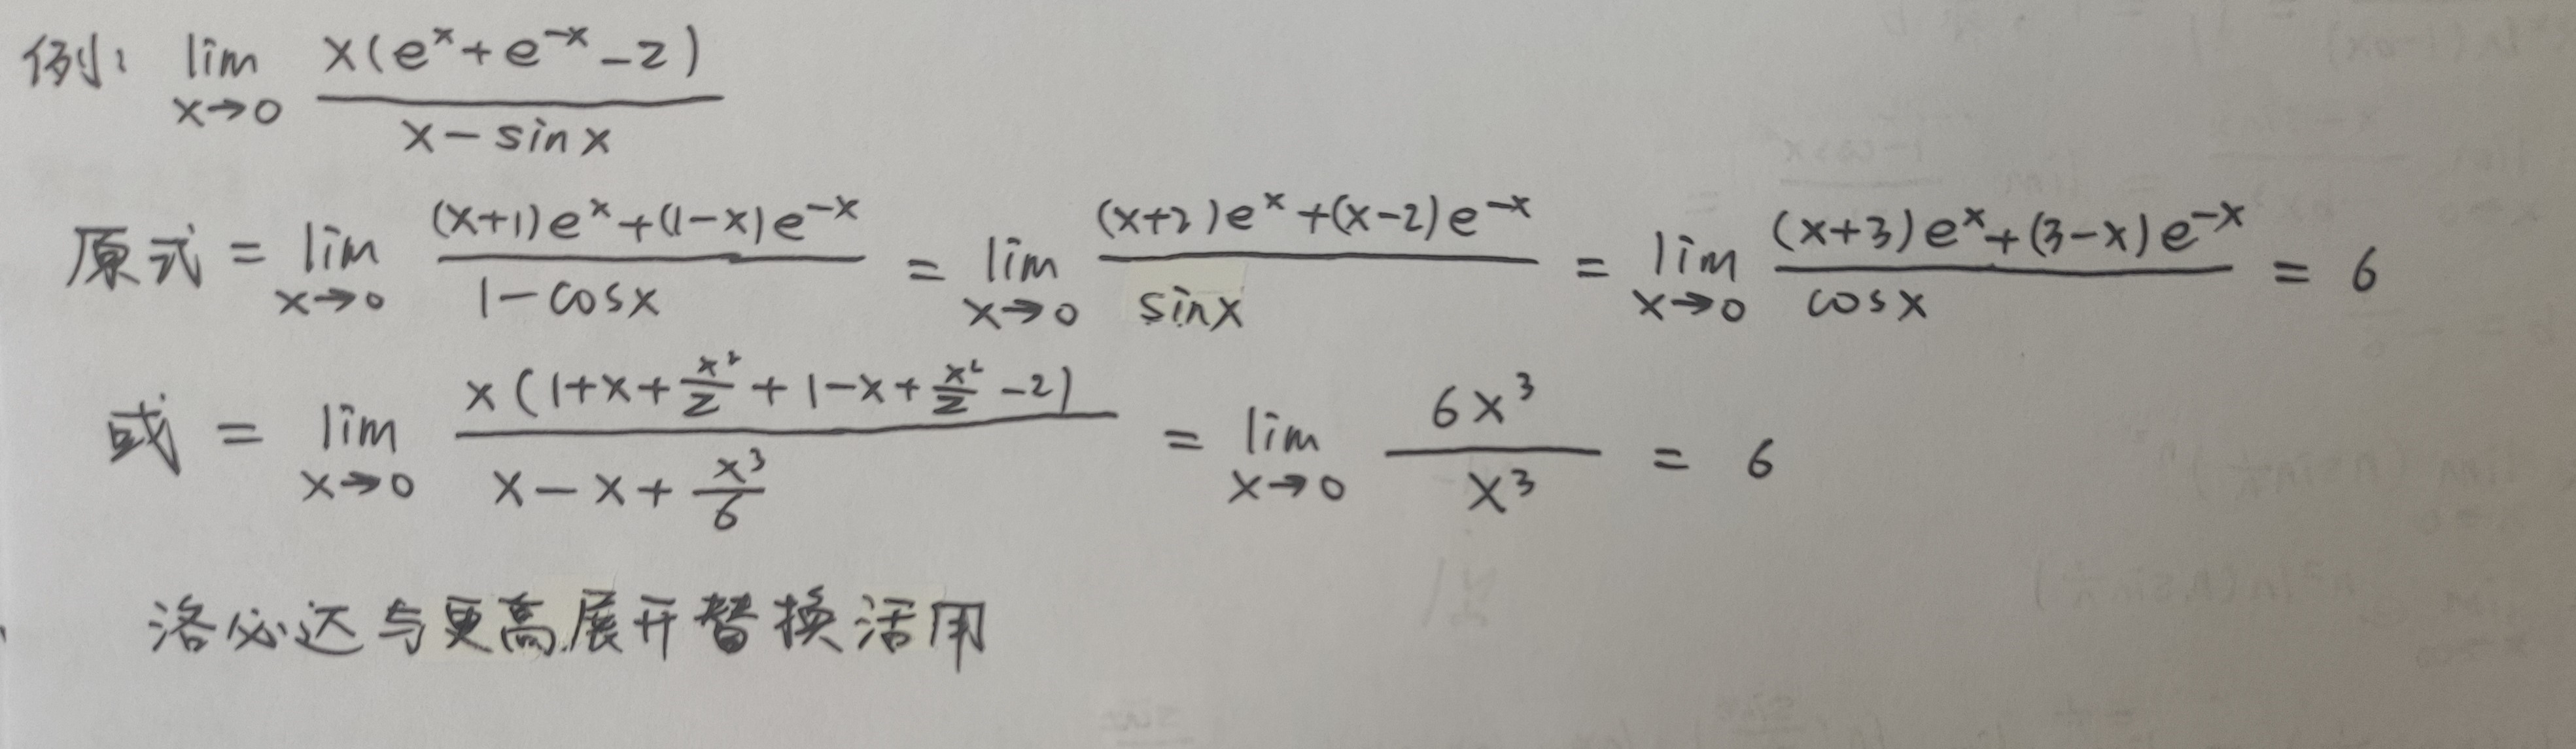 例: lim x→0 x(e^x+e^-x-2) / x-sinx
原式 = lim x→0 (x+1)e^x+(1-x)e^-x / 1-cosx = lim x→0 (x+2)e^x+(x-2)e^-x / sinx = lim x→0 (x+3)e^x+(3-x)e^-x / cosx = 6
或 = lim x→0 x(1+x+x²/2+1-x+x²/2-2) / x-x+x³/6 = lim x→0 6x³ / x³ = 6
洛必达与更高展开替换活用